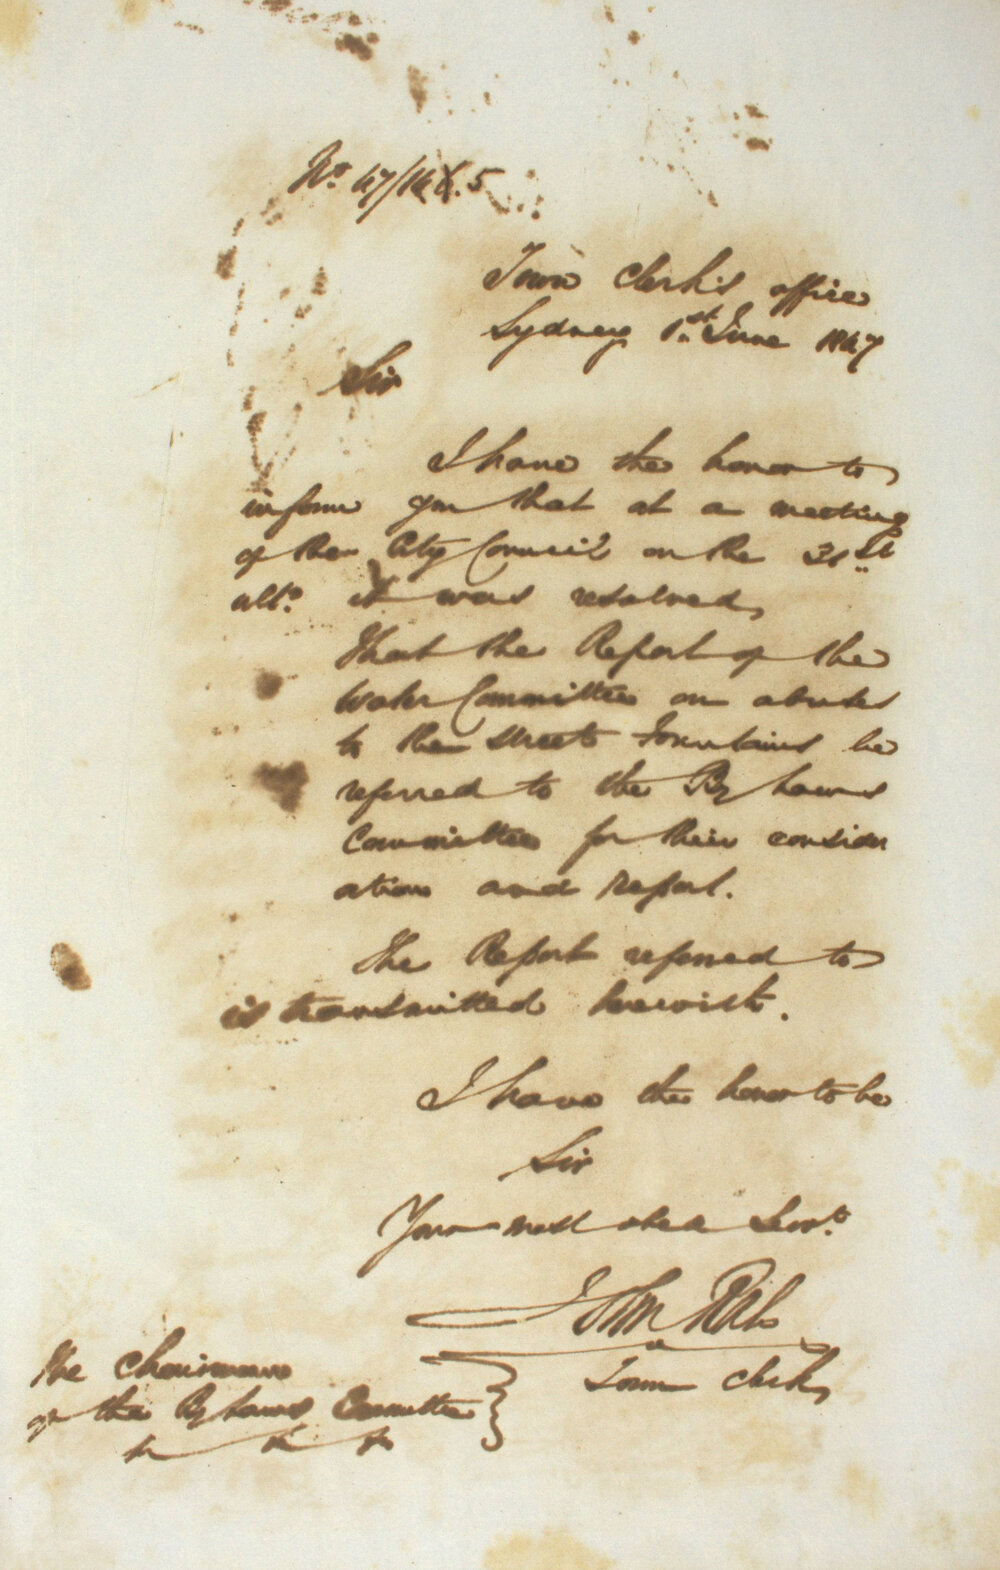 Town Clerk's office
Sydney 1st June 1847
Sir
I have the honor to
inform you that at a meeting
of the City Council on the 31st
ulto. it was resolved,
That the Report of the
Water Committee on abuses
to the Streets Fountains be
referred to the By Laws
Committee for their consider
ation and Report.
The Report referred to
is transmitted herewith.
I have the honor to be
Sir
Your most obed Servt.
John
Town Clerk,
The Chairman
of the By Laws Committee